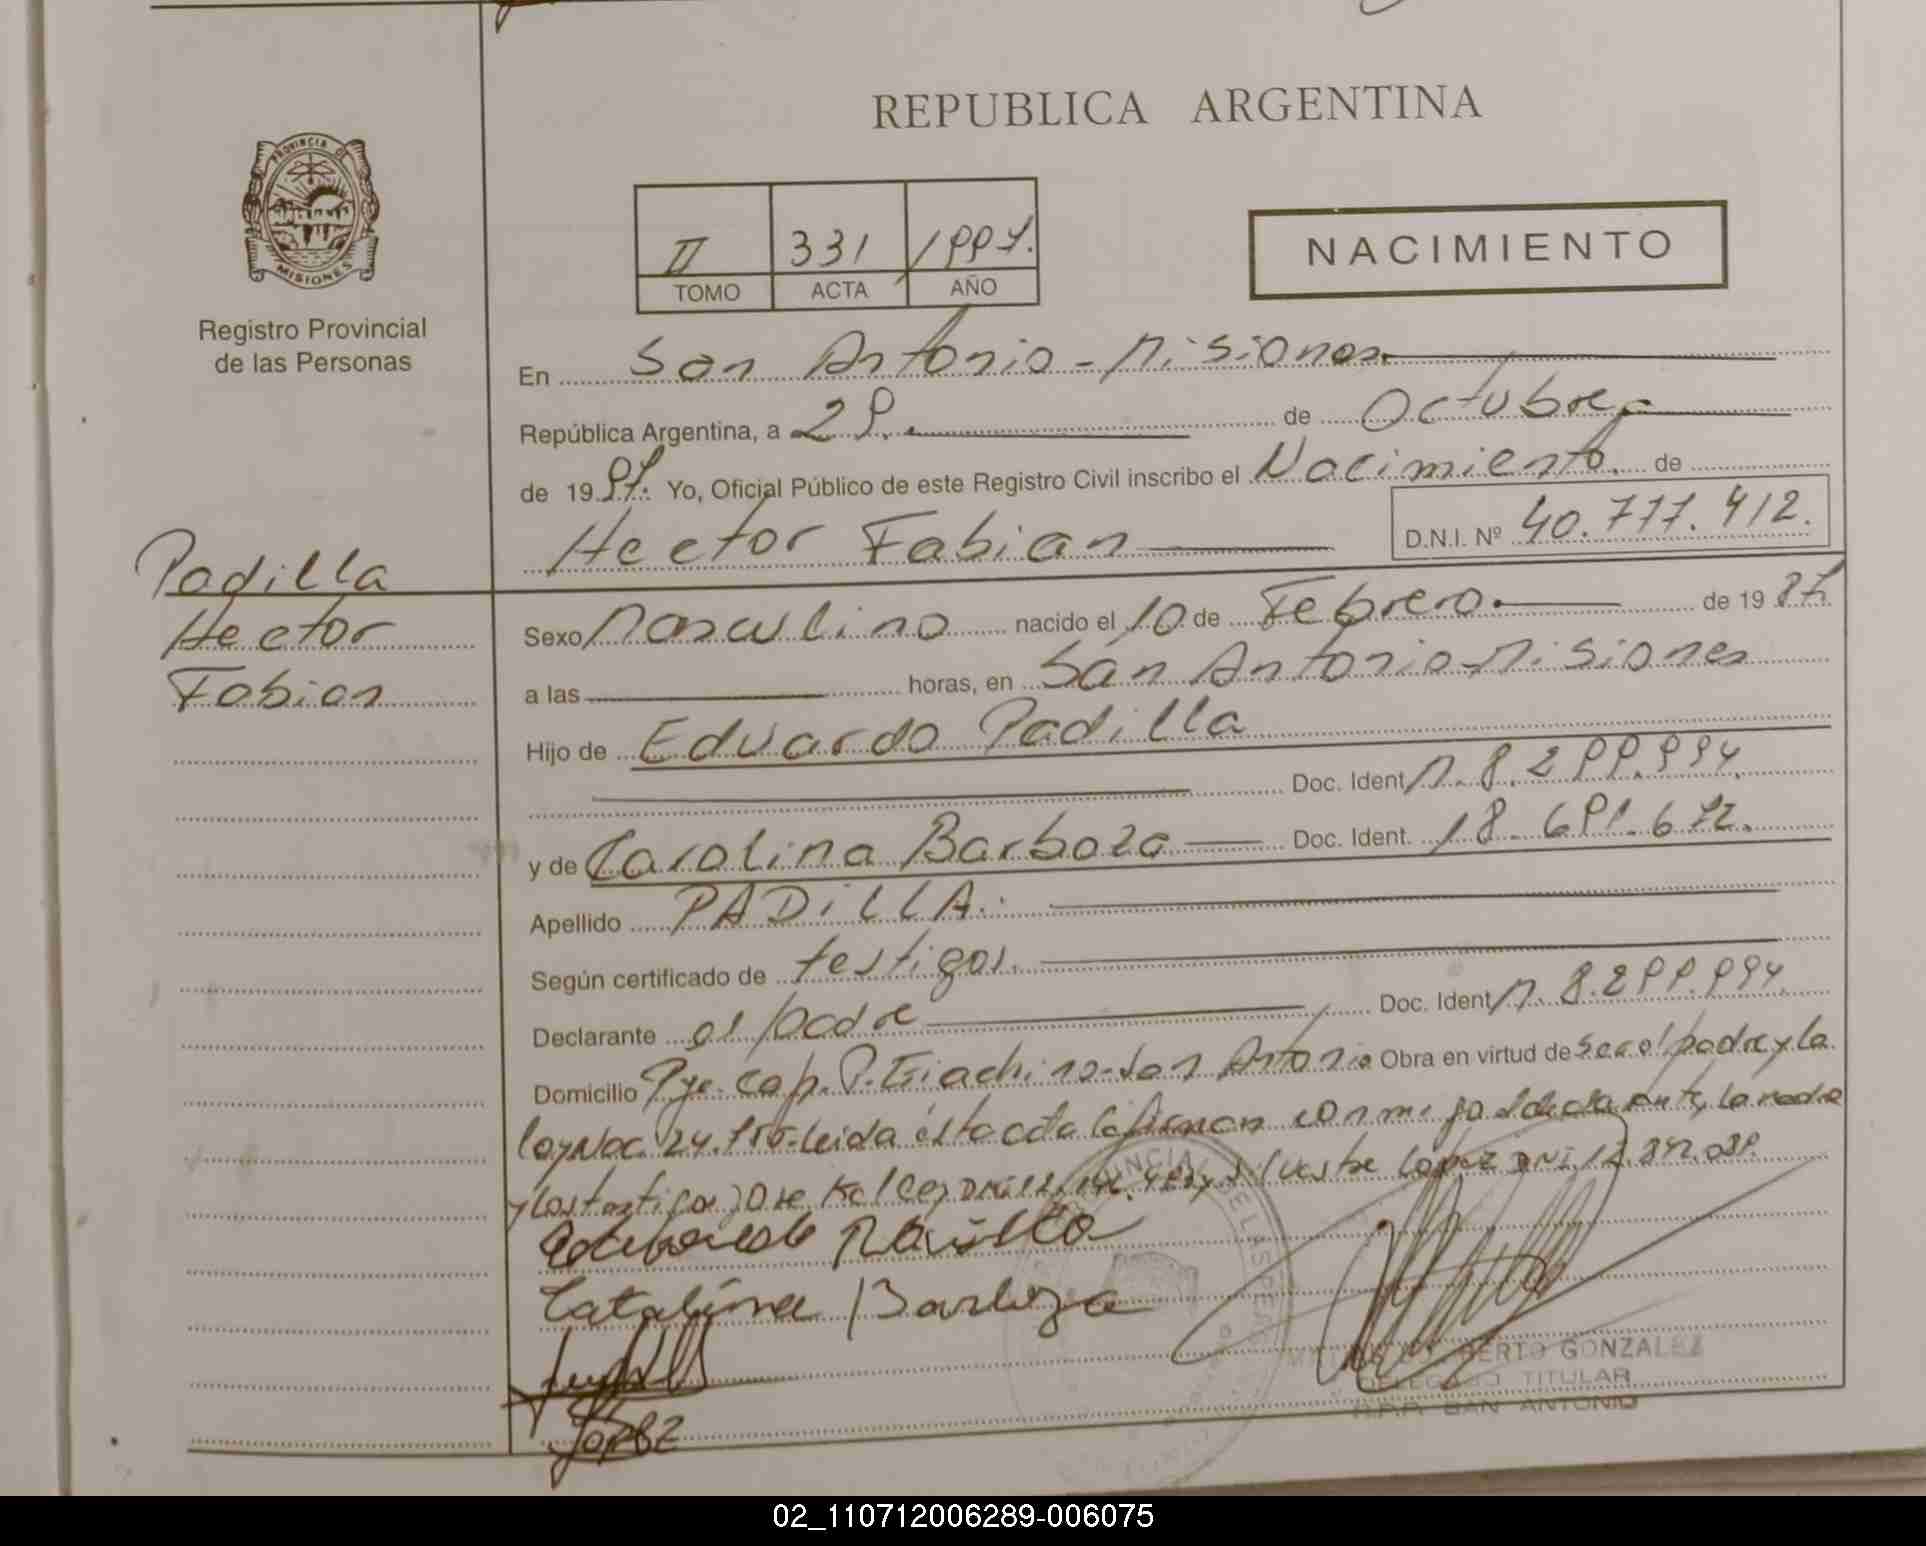 REPUBLICA ARGENTINA
PROVINCIA DE
MISIONES
Registro Provincial
de las Personas
II 331 1997.
TOMO ACTA AÑO
NACIMIENTO
En San Antonio - Misiones
República Argentina, a 29. de Octubre
de 1997. Yo, Oficial Público de este Registro Civil inscribo el Nacimiento. de
Hector Fabian
D.N.I. Nº 40.777.412.
Padilla
Hector
Fabian
Sexo Masculino nacido el 10 de Febrero de 1987
a las horas, en San Antonio - Misiones
Hijo de Eduardo Padilla
Doc. Ident M. 8.299.994.
y de Carolina Barboza Doc. Ident. 18.691.672.
Apellido PADiLLA.
Según certificado de testigos.
Declarante el padre Doc. Ident M. 8.299.994.
Domicilio Pje. Cap. P. Giachino - San Antonio Obra en virtud de ser el padre y la
Ley Nac. 24.755 - Leida esta acta la firman conmigo el declarante, la madre
y los testigos Jose DNI 12. y Silvestre Lopez DNI 12.842.039.
Padilla
Catalina Barboza
LOPEZ
GONZALEZ
DELEGADO TITULAR
R.P.P. SAN ANTONIO
02_110712006289-006075